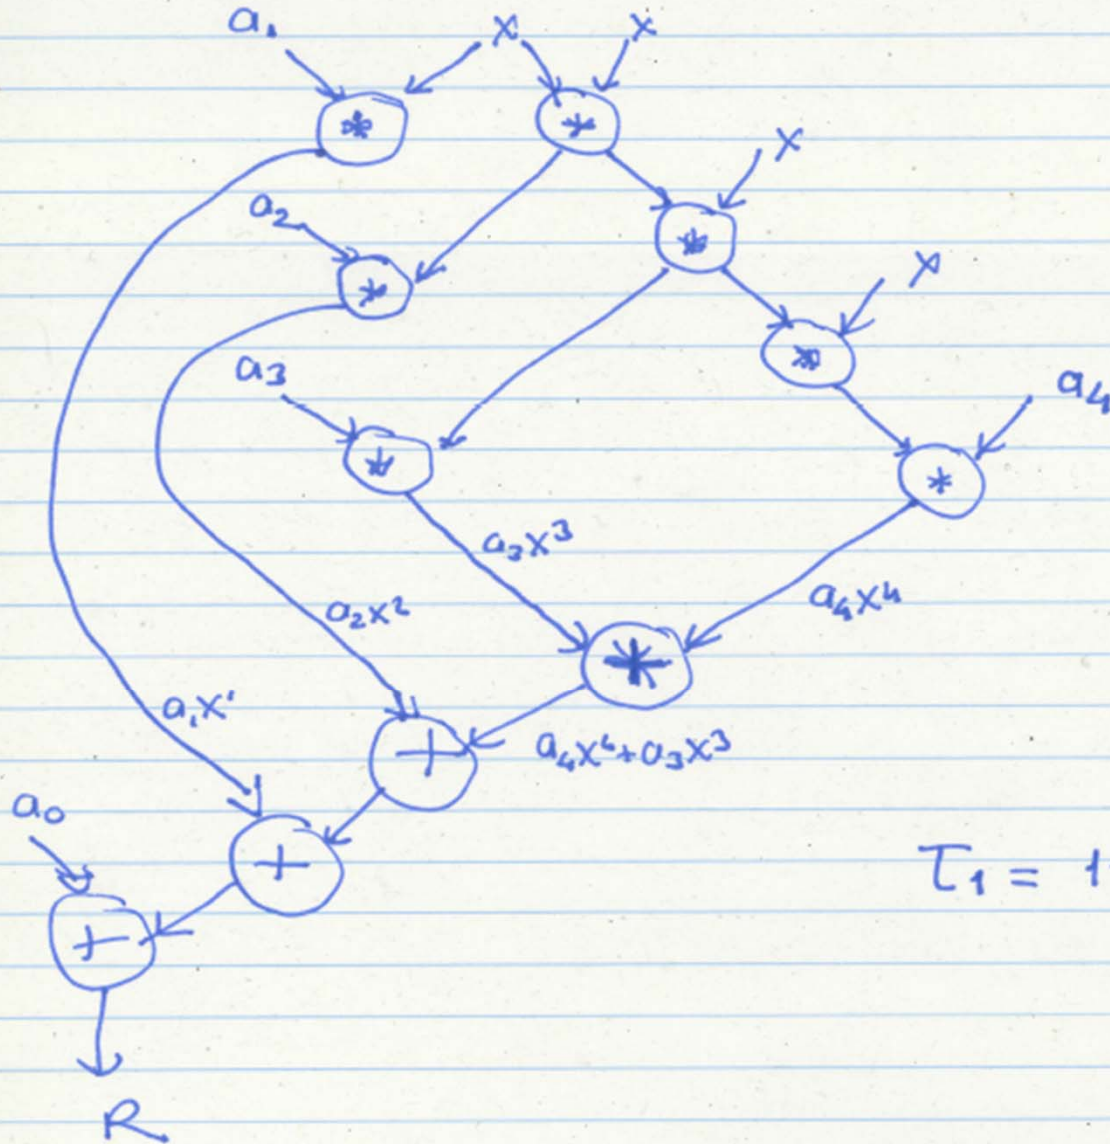 a₁ x x
* *
x
a₂ *
* x
a₃ *
* a₄
*
a₃x³
a₂x² a₄x⁴
*
a₁x'
+ a₄x⁴+a₃x³
a₀
+ τ₁ = 1
+
R